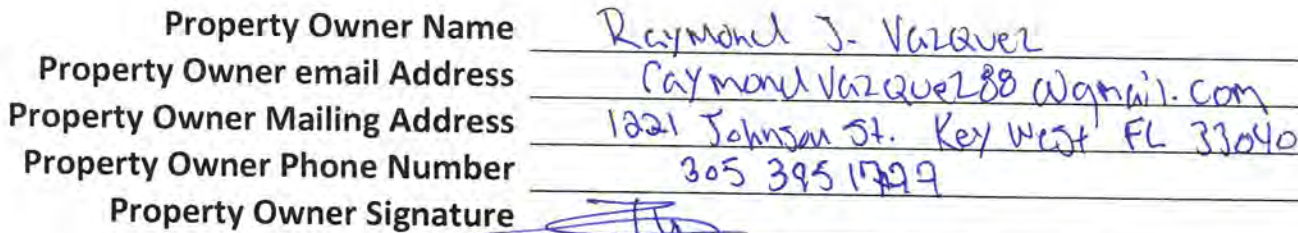 Property Owner Name Raymond J. Vazquez
Property Owner email Address raymondvazquez88@gmail.com
Property Owner Mailing Address 1221 Johnson St. Key West FL 33040
Property Owner Phone Number 305 395
Property Owner Signature